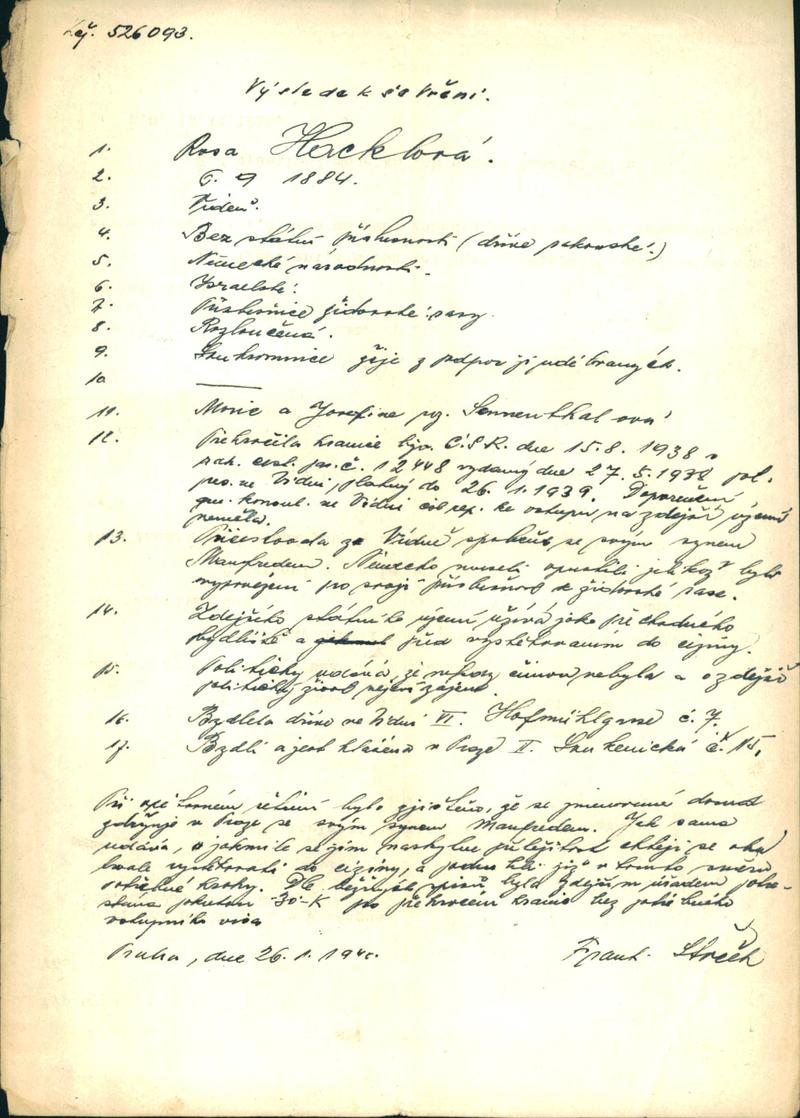 čj. 526093.
Výsledek šetření.
1. Rosa Hacklová.
2. 6. 9 1884.
3. Vídeň.
4. Bez státní příslušnosti (dříve rakouské.)
5. Německé národnosti.
6. Israelské.
7. Příslušnice židovské rasy.
8. Rozloučená.
9. Soukromnice žije z podpor jí udě
10. ———
11. Moric a Josefine roz. Sonnenthalová
12. Překročila hranice býv. Č.S.R. dne 15.8. 1938 s
rak. cest. pas. č. 12448 vydaný dne 27. 5. 1938 pol.
ve Vídni, platný do 26. 1. 1939. Doporučení
konsul. ve Vídni ke vstupu na zdejší území
neměla.
13. Přicestovala ze Vídně společně se svým synem
Manfredem. Německo museli opustiti jelikož byli
po svojí příslušnosti k židovské rase.
14. Zdejšího státního území užívá jako přechodného
bydliště a před vystěhováním do ciziny.
15. Politicky udává, že nikdy činnou nebyla a o zdejší
politický život nejeví zájem.
16. Bydlela dříve ve Vídni VI. Hofmühlgasse č. 7.
17. Bydlí a jest hlášena v Praze II. Soukenická č. 15.
Při opětovném šetření bylo zjištěno, že se jmenovaná dosud
zdržuje v Praze se svým synem Manfredem. Jak sama
udává, jakmile se jim naskytne příležitost chtějí se oba
vystěhovati do ciziny, a podnikli již v tomto směru
potřebné kroky. Dle zdejších spisů, byla zdejším úřadem potre-
stána pokutou 30-K po překročení hranic bez potřebného
vstupního visa
Praha, dne 26. 1. 1940.
Frant.